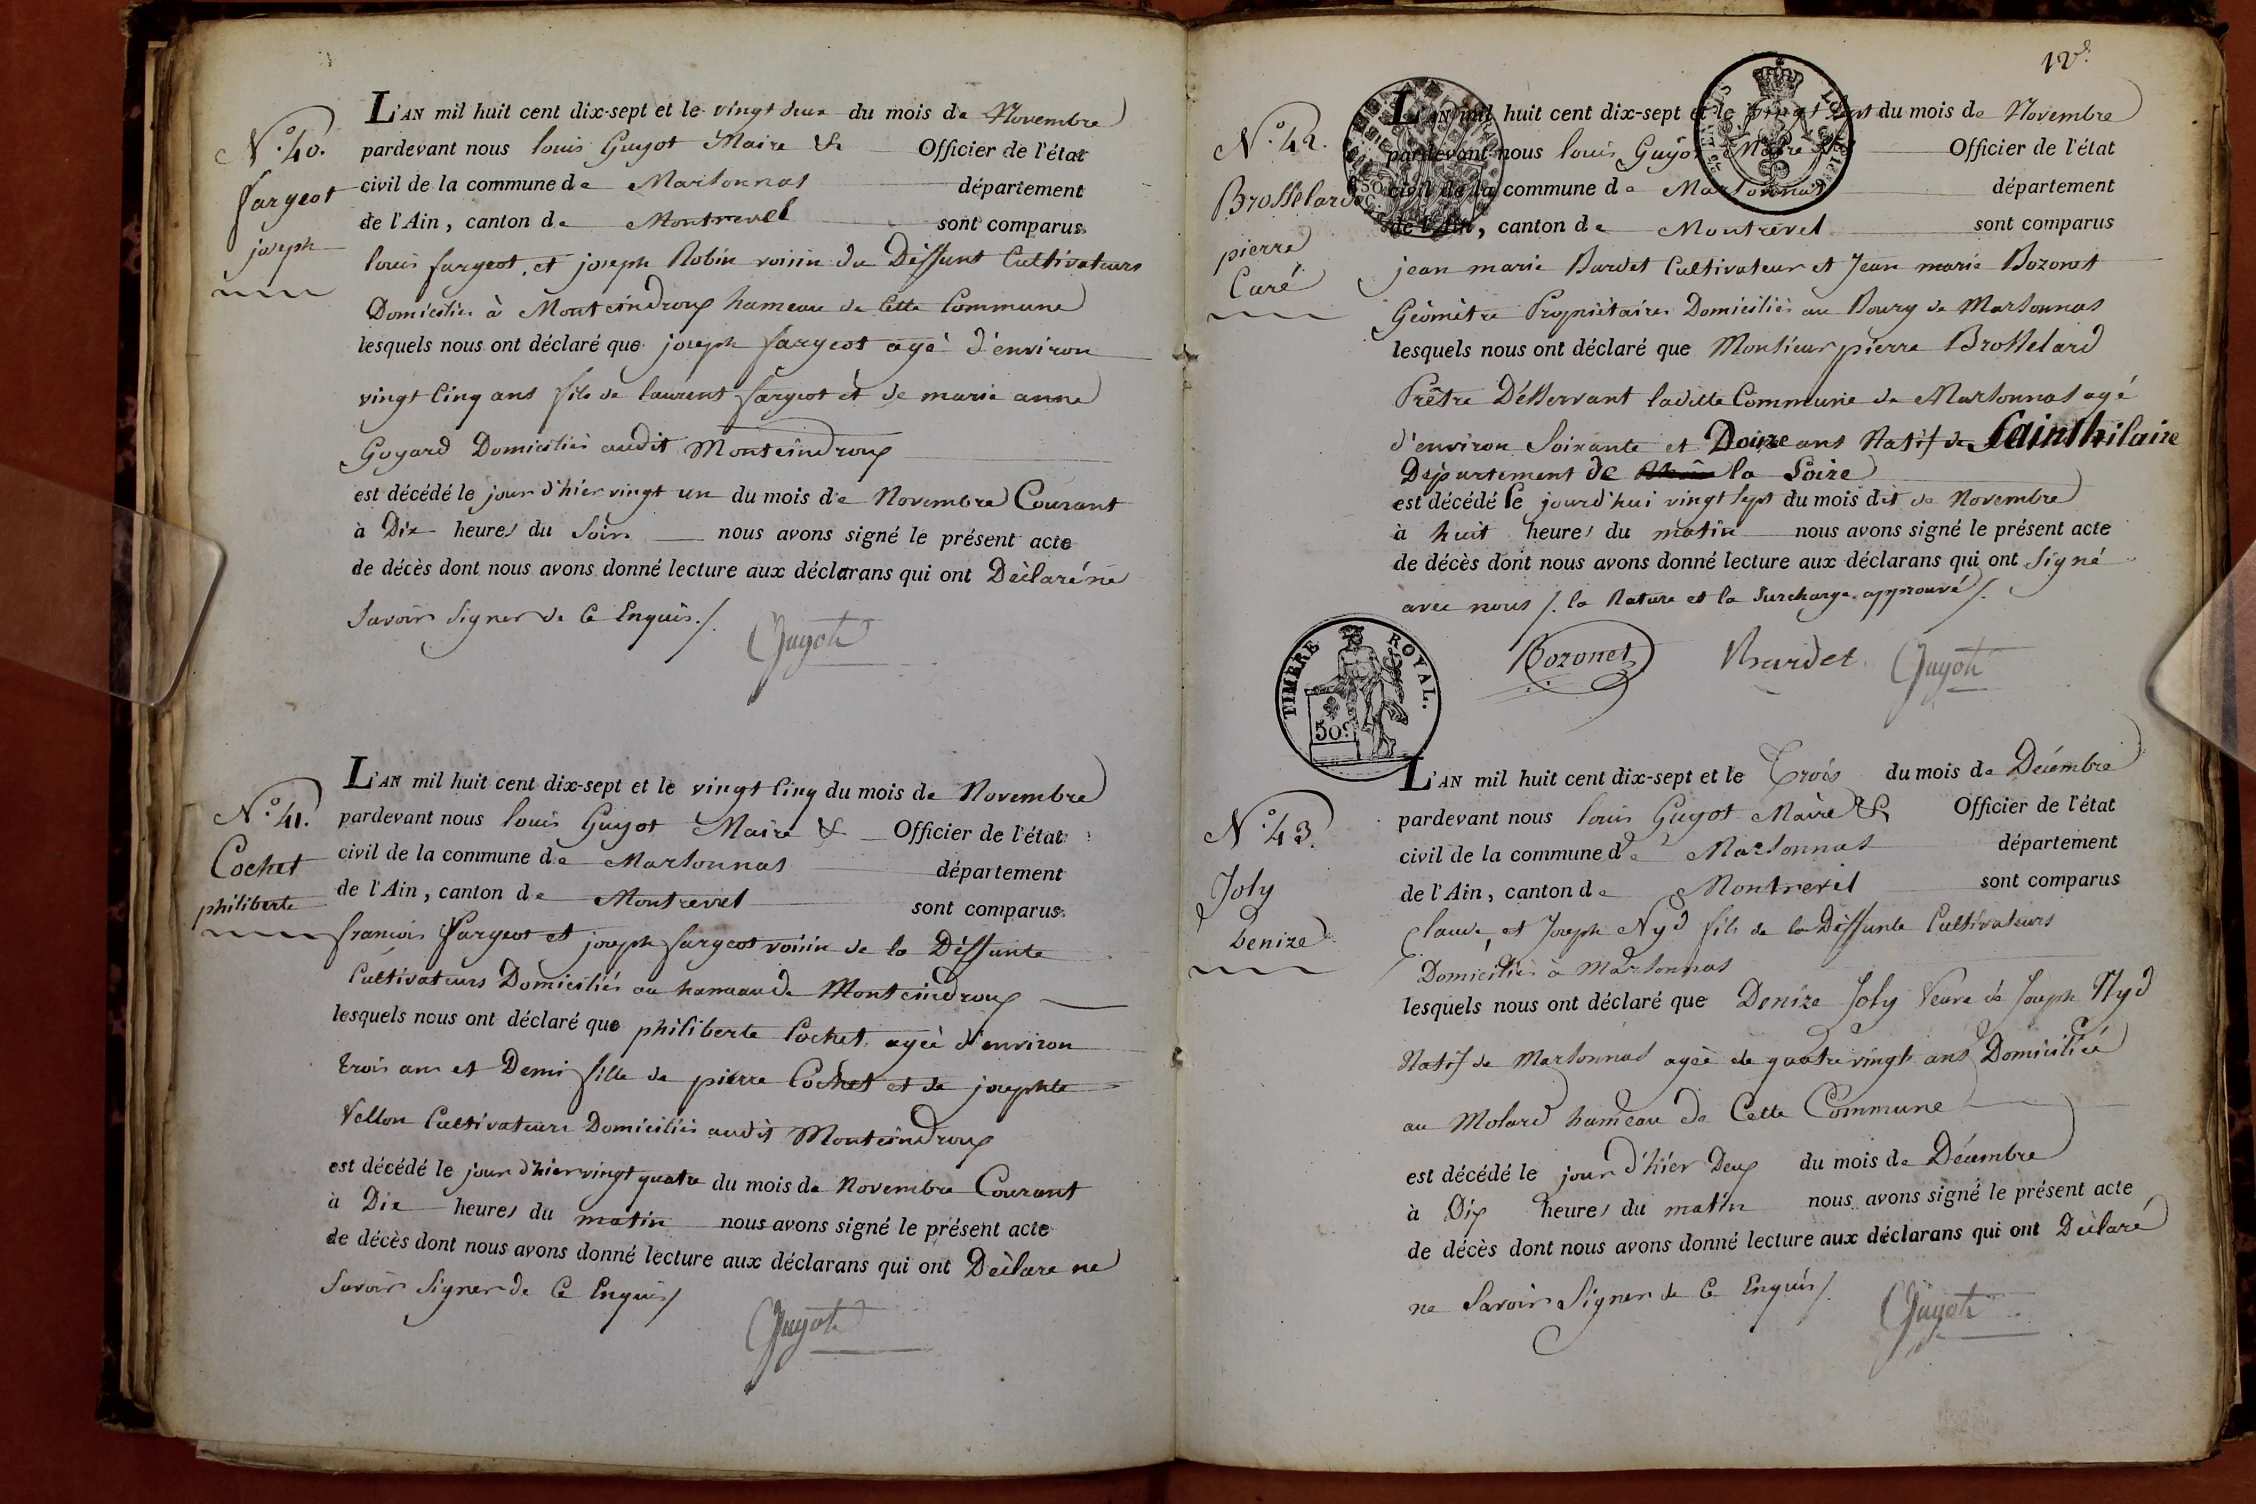 N.º 40.
fargeot
joseph
L'AN mil huit cent dix-sept et le vingt deux du mois de Novembre
pardevant nous louis Guyot Maire & Officier de l'état
civil de la commune de Marsonnas département
de l'Ain, canton de Montrevel sont comparus
louis fargeot, et joseph Robin voisin du Déffunt Cultivateurs
Domiciliés à Montcindroux hameau de Cette Commune
lesquels nous ont déclaré que joseph fargeot agé d'environ
vingt Cinq ans fils de laurent fargeot et de marie anne
Goyard Domiciliés audit Montcindroux
est décédé le jour d'hier vingt un du mois de Novembre Courant
à Dix heures du Soir nous avons signé le présent acte
de décès dont nous avons donné lecture aux déclarans qui ont Déclaré ne
Savoir Signer de Ce Enquis ./.
Guyot
N.º 41.
Cochet
philiberte
L'AN mil huit cent dix-sept et le vingt Cinq du mois de Novembre
pardevant nous louis Guyot Maire & Officier de l'état
civil de la commune de Marsonnas département
de l'Ain, canton de Montrevel sont comparus
françois fargeot et joseph fargeot voisin de la Déffunte
Cultivateurs Domiciliés au hameau de Montcindroux
lesquels nous ont déclaré que philiberte Cochet agée d'environ
trois ans et Demi fille de pierre Cochet et de josephte
Vellon Cultivateurs Domiciliés audit Montcindroux
est décédé le jour d'hier vingt quatre du mois de Novembre Courant
à Dix heures du matin nous avons signé le présent acte
de décès dont nous avons donné lecture aux déclarans qui ont Déclare ne
Savoir Signer de Ce Enquis /
Guyot
N.º 42.
Brosselard
pierre
Curé
L'AN mil huit cent dix-sept et le vingt Sept du mois de Novembre
pardevant nous louis Guyot Maire & Officier de l'état
civil de la commune de Marsonnas département
de l'Ain, canton de Montrevel sont comparus
jean marie Burdet Cultivateur et Jean marie Bozonet
Géomètre Propriétaires Domiciliés au Bourg de Marsonnas
lesquels nous ont déclaré que Monsieur pierre Brosselard
Prêtre Désservant laditte Commune de Marsonnas agé
d'environ Soixante et Douze ans Natif de Saint hilaire
Département de la Loire
est décédé le jourd'hui vingt Sept du mois dit de Novembre
à huit heures du matin nous avons signé le présent acte
de décès dont nous avons donné lecture aux déclarans qui ont Signé
avec nous /. la Rature et la Surcharge approuvé /.
Bozonet Burdet Guyot
TIMBRE ROYAL.
50c
N.º 43.
Joly
Denize
L'AN mil huit cent dix-sept et le Trois du mois de Décembre
pardevant nous louis Guyot Maire & Officier de l'état
civil de la commune de Marsonnas département
de l'Ain, canton de Montrevel sont comparus
Claude, et Joseph Nyd fils de la Déffunte Cultivateurs
Domiciliés à Marsonnas
lesquels nous ont déclaré que Denize Joly Veuve de Joseph Nyd
Natif de Marsonnas agée de quatre vingt ans Domiciliée
au Molard hameau de Cette Commune
est décédé le jour d'hier Deux du mois de Décembre
à Dix heures du matin nous avons signé le présent acte
de décès dont nous avons donné lecture aux déclarans qui ont Déclaré
ne Savoir Signer de Ce Enquis /.
Guyot